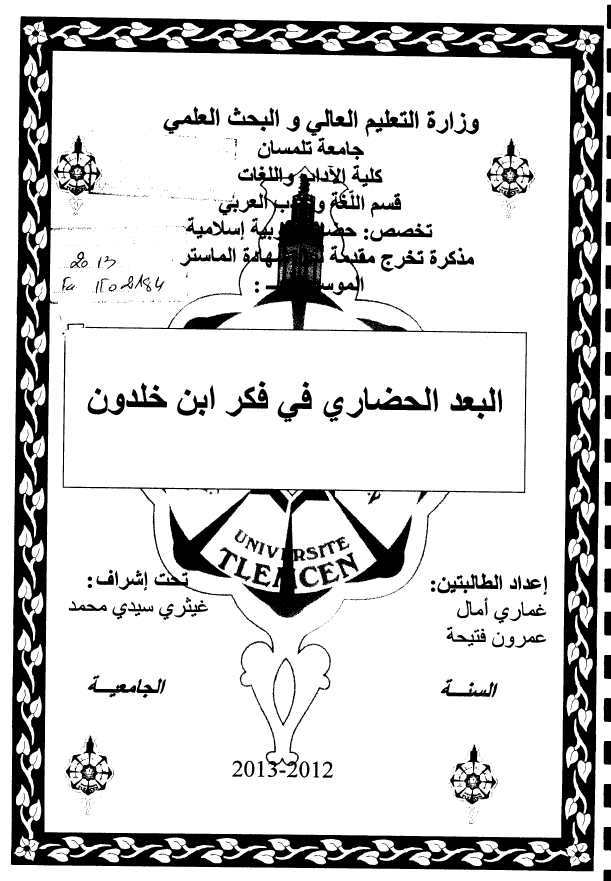 وزارة التعليم العالي و البحث العلمي
جامعة تلمسان
كلية الآداب واللغات
قسم اللّغة والأدب العربي
تخصص: عربية إسلامية
مذكرة تخرج مقدمة شهادة الماستر
2013
البعد الحضاري في فكر ابن خلدون
UNIVERSITE
TLEMCEN
إعداد الطالبتين:
غماري أمال
عمرون فتيحة
تحت إشراف:
غيثري سيدي محمد
السنــة الجامعيــة
2013-2012